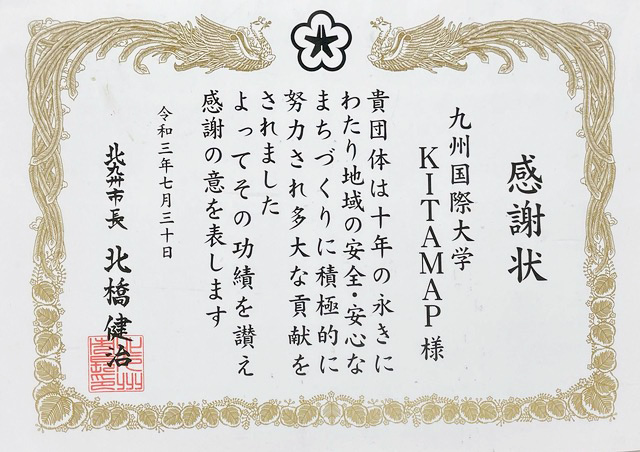 感謝状
九州国際大学
KITAMAP様
貴団体は十年の永きに
わたり地域の安全・安心な
まちづくりに積極的に
努力され多大な貢献を
されました
よってその功績を讃え
感謝の意を表します
令和三年七月三十日
北九州市長 北橋健治